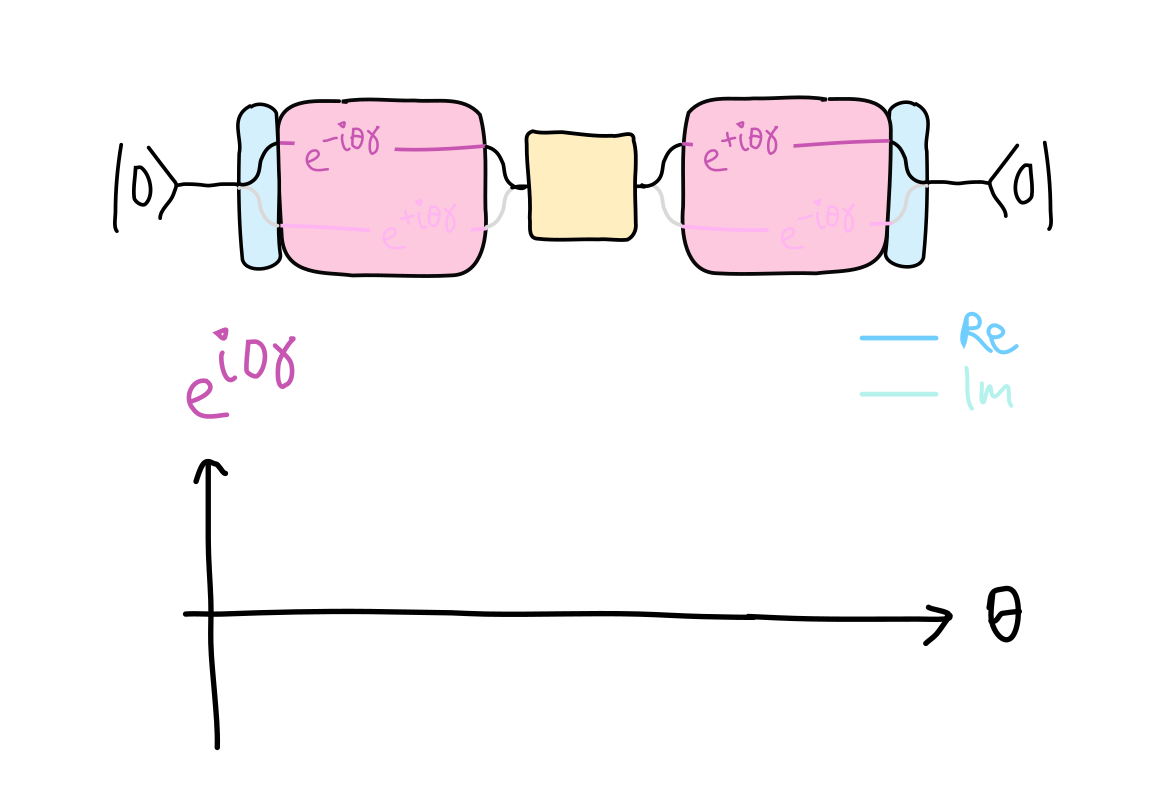 |0⟩ e^{-iθγ} e^{+iθγ} ⟨0|
e^{+iθγ} e^{-iθγ}
Re
e^{iθγ}
Im
θ